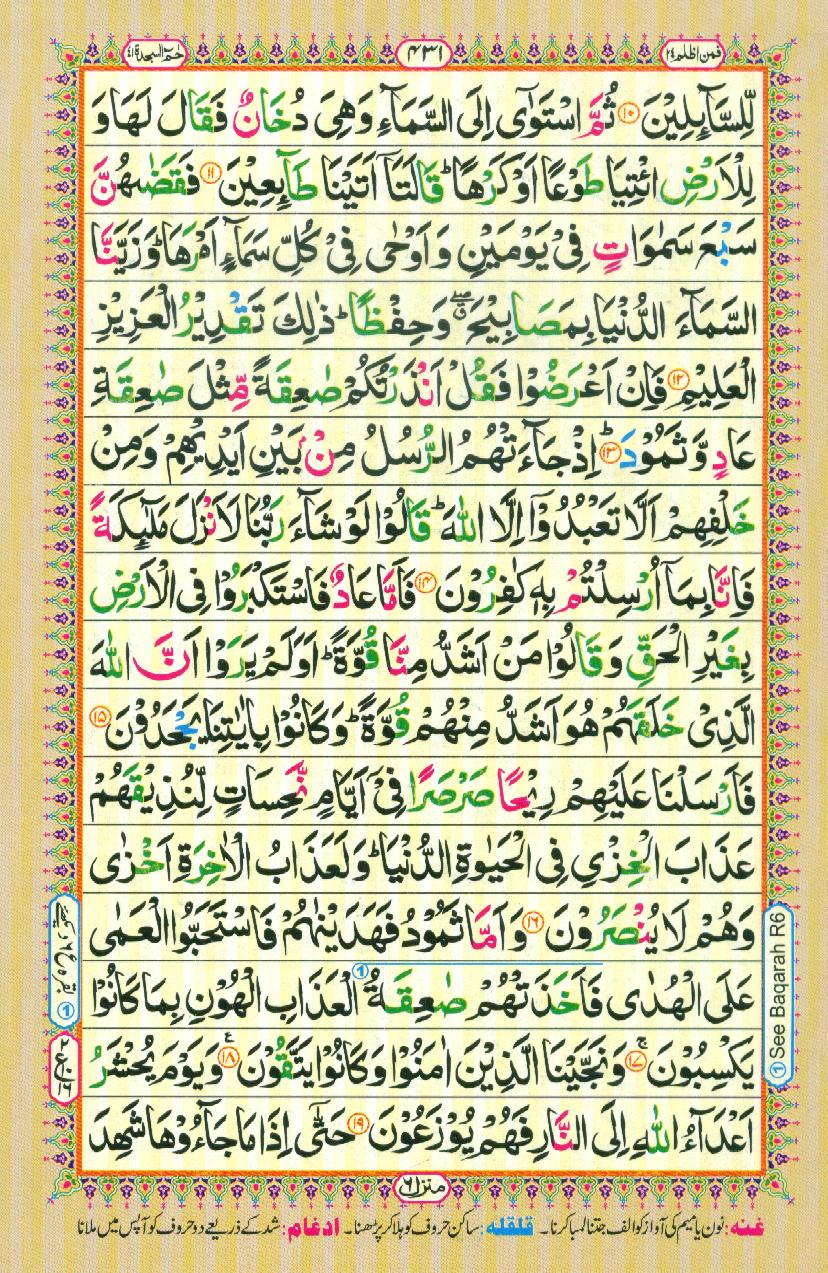 فمن اظلم ٢٤
٤٣١
حٰمٓ السجدة ٤١
لِّلسَّآىِٕلِيْنَ ۝١٠ ثُمَّ اسْتَوٰٓى اِلَى السَّمَآءِ وَهِىَ دُخَانٌ فَقَالَ لَهَا وَ
لِلْاَرْضِ ائْتِيَا طَوْعًا اَوْ كَرْهًا ؕ قَالَتَاۤ اَتَيْنَا طَآىِٕعِيْنَ ۝١١ فَقَضٰىهُنَّ
سَبْعَ سَمٰوَاتٍ فِىْ يَوْمَيْنِ وَاَوْحٰى فِىْ كُلِّ سَمَآءٍ اَمْرَهَا ؕ وَزَيَّنَّا
السَّمَآءَ الدُّنْيَا بِمَصَابِيْحَ ۖۗ وَحِفْظًا ؕ ذٰلِكَ تَقْدِيْرُ الْعَزِيْزِ
الْعَلِيْمِ ۝١٢ فَاِنْ اَعْرَضُوْا فَقُلْ اَنْذَرْتُكُمْ صٰعِقَةً مِّثْلَ صٰعِقَةِ
عَادٍ وَّثَمُوْدَ ۝١٣ؕ اِذْ جَآءَتْهُمُ الرُّسُلُ مِنْۢ بَيْنِ اَيْدِيْهِمْ وَمِنْ
خَلْفِهِمْ اَلَّا تَعْبُدُوْۤا اِلَّا اللّٰهَ ؕ قَالُوْا لَوْ شَآءَ رَبُّنَا لَاَنْزَلَ مَلٰٓىِٕكَةً
فَاِنَّا بِمَاۤ اُرْسِلْتُمْ بِهٖ كٰفِرُوْنَ ۝١٤ فَاَمَّا عَادٌ فَاسْتَكْبَرُوْا فِى الْاَرْضِ
بِغَيْرِ الْحَقِّ وَقَالُوْا مَنْ اَشَدُّ مِنَّا قُوَّةً ؕ اَوَلَمْ يَرَوْا اَنَّ اللّٰهَ
الَّذِىْ خَلَقَهُمْ هُوَ اَشَدُّ مِنْهُمْ قُوَّةً ؕ وَكَانُوْا بِاٰيٰتِنَا يَجْحَدُوْنَ ۝١٥
فَاَرْسَلْنَا عَلَيْهِمْ رِيْحًا صَرْصَرًا فِىْۤ اَيَّامٍ نَّحِسَاتٍ لِّنُذِيْقَهُمْ
عَذَابَ الْخِزْيِ فِى الْحَيٰوةِ الدُّنْيَا ؕ وَلَعَذَابُ الْاٰخِرَةِ اَخْزٰى
وَهُمْ لَا يُنْصَرُوْنَ ۝١٦ وَاَمَّا ثَمُوْدُ فَهَدَيْنٰهُمْ فَاسْتَحَبُّوا الْعَمٰى
عَلَى الْهُدٰى فَاَخَذَتْهُمْ صٰعِقَةُ ① الْعَذَابِ الْهُوْنِ بِمَا كَانُوْا
يَكْسِبُوْنَ ۝١٧ۚ وَنَجَّيْنَا الَّذِيْنَ اٰمَنُوْا وَكَانُوْا يَتَّقُوْنَ ۝١٨ ع وَيَوْمَ يُحْشَرُ
اَعْدَآءُ اللّٰهِ اِلَى النَّارِ فَهُمْ يُوْزَعُوْنَ ۝١٩ حَتّٰٓى اِذَا مَا جَآءُوْهَا شَهِدَ
① See Baqarah R6
① بقره ع ٦ دیکھئے
منزل ٦
غنه: نون یا میم کی آواز کو الف جتنا لمبا کرنا۔ قلقله: ساکن حروف کو ہلا کر پڑھنا۔ ادغام: شد کے ذریعے دو حروف کو آپس میں ملانا